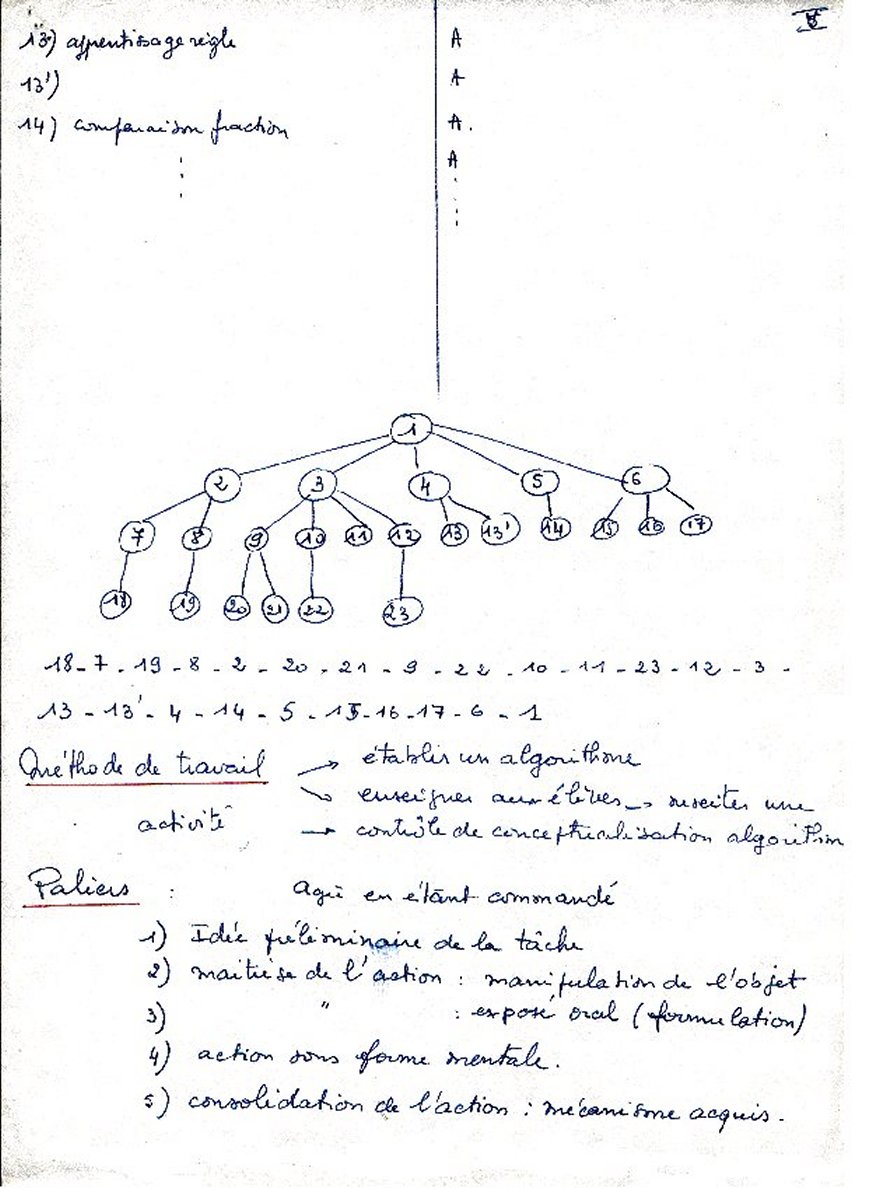 13) apprentissage règle A
13') A
14) comparaison fraction A.
A
1
2 3 4 5 6
7 8 9 10 11 12 13 13' 14 15 16 17
18 19 20 21 22 23
18 - 7 - 19 - 8 - 2 - 20 - 21 - 9 - 22 - 10 - 11 - 23 - 12 - 3 -
13 - 13' - 4 - 14 - 5 - 15 - 16 - 17 - 6 - 1
Méthode de travail → établir un algorithme
→ enseigner aux élèves → susciter une
activité
→ contrôle de conceptualisation algorithm
Paliers : agir en étant commandé
1) Idée préliminaire de la tâche
2) maitrise de l'action : manipulation de l'objet
3) " : exposé oral (formulation)
4) action sous forme mentale.
5) consolidation de l'action : mécanisme acquis.